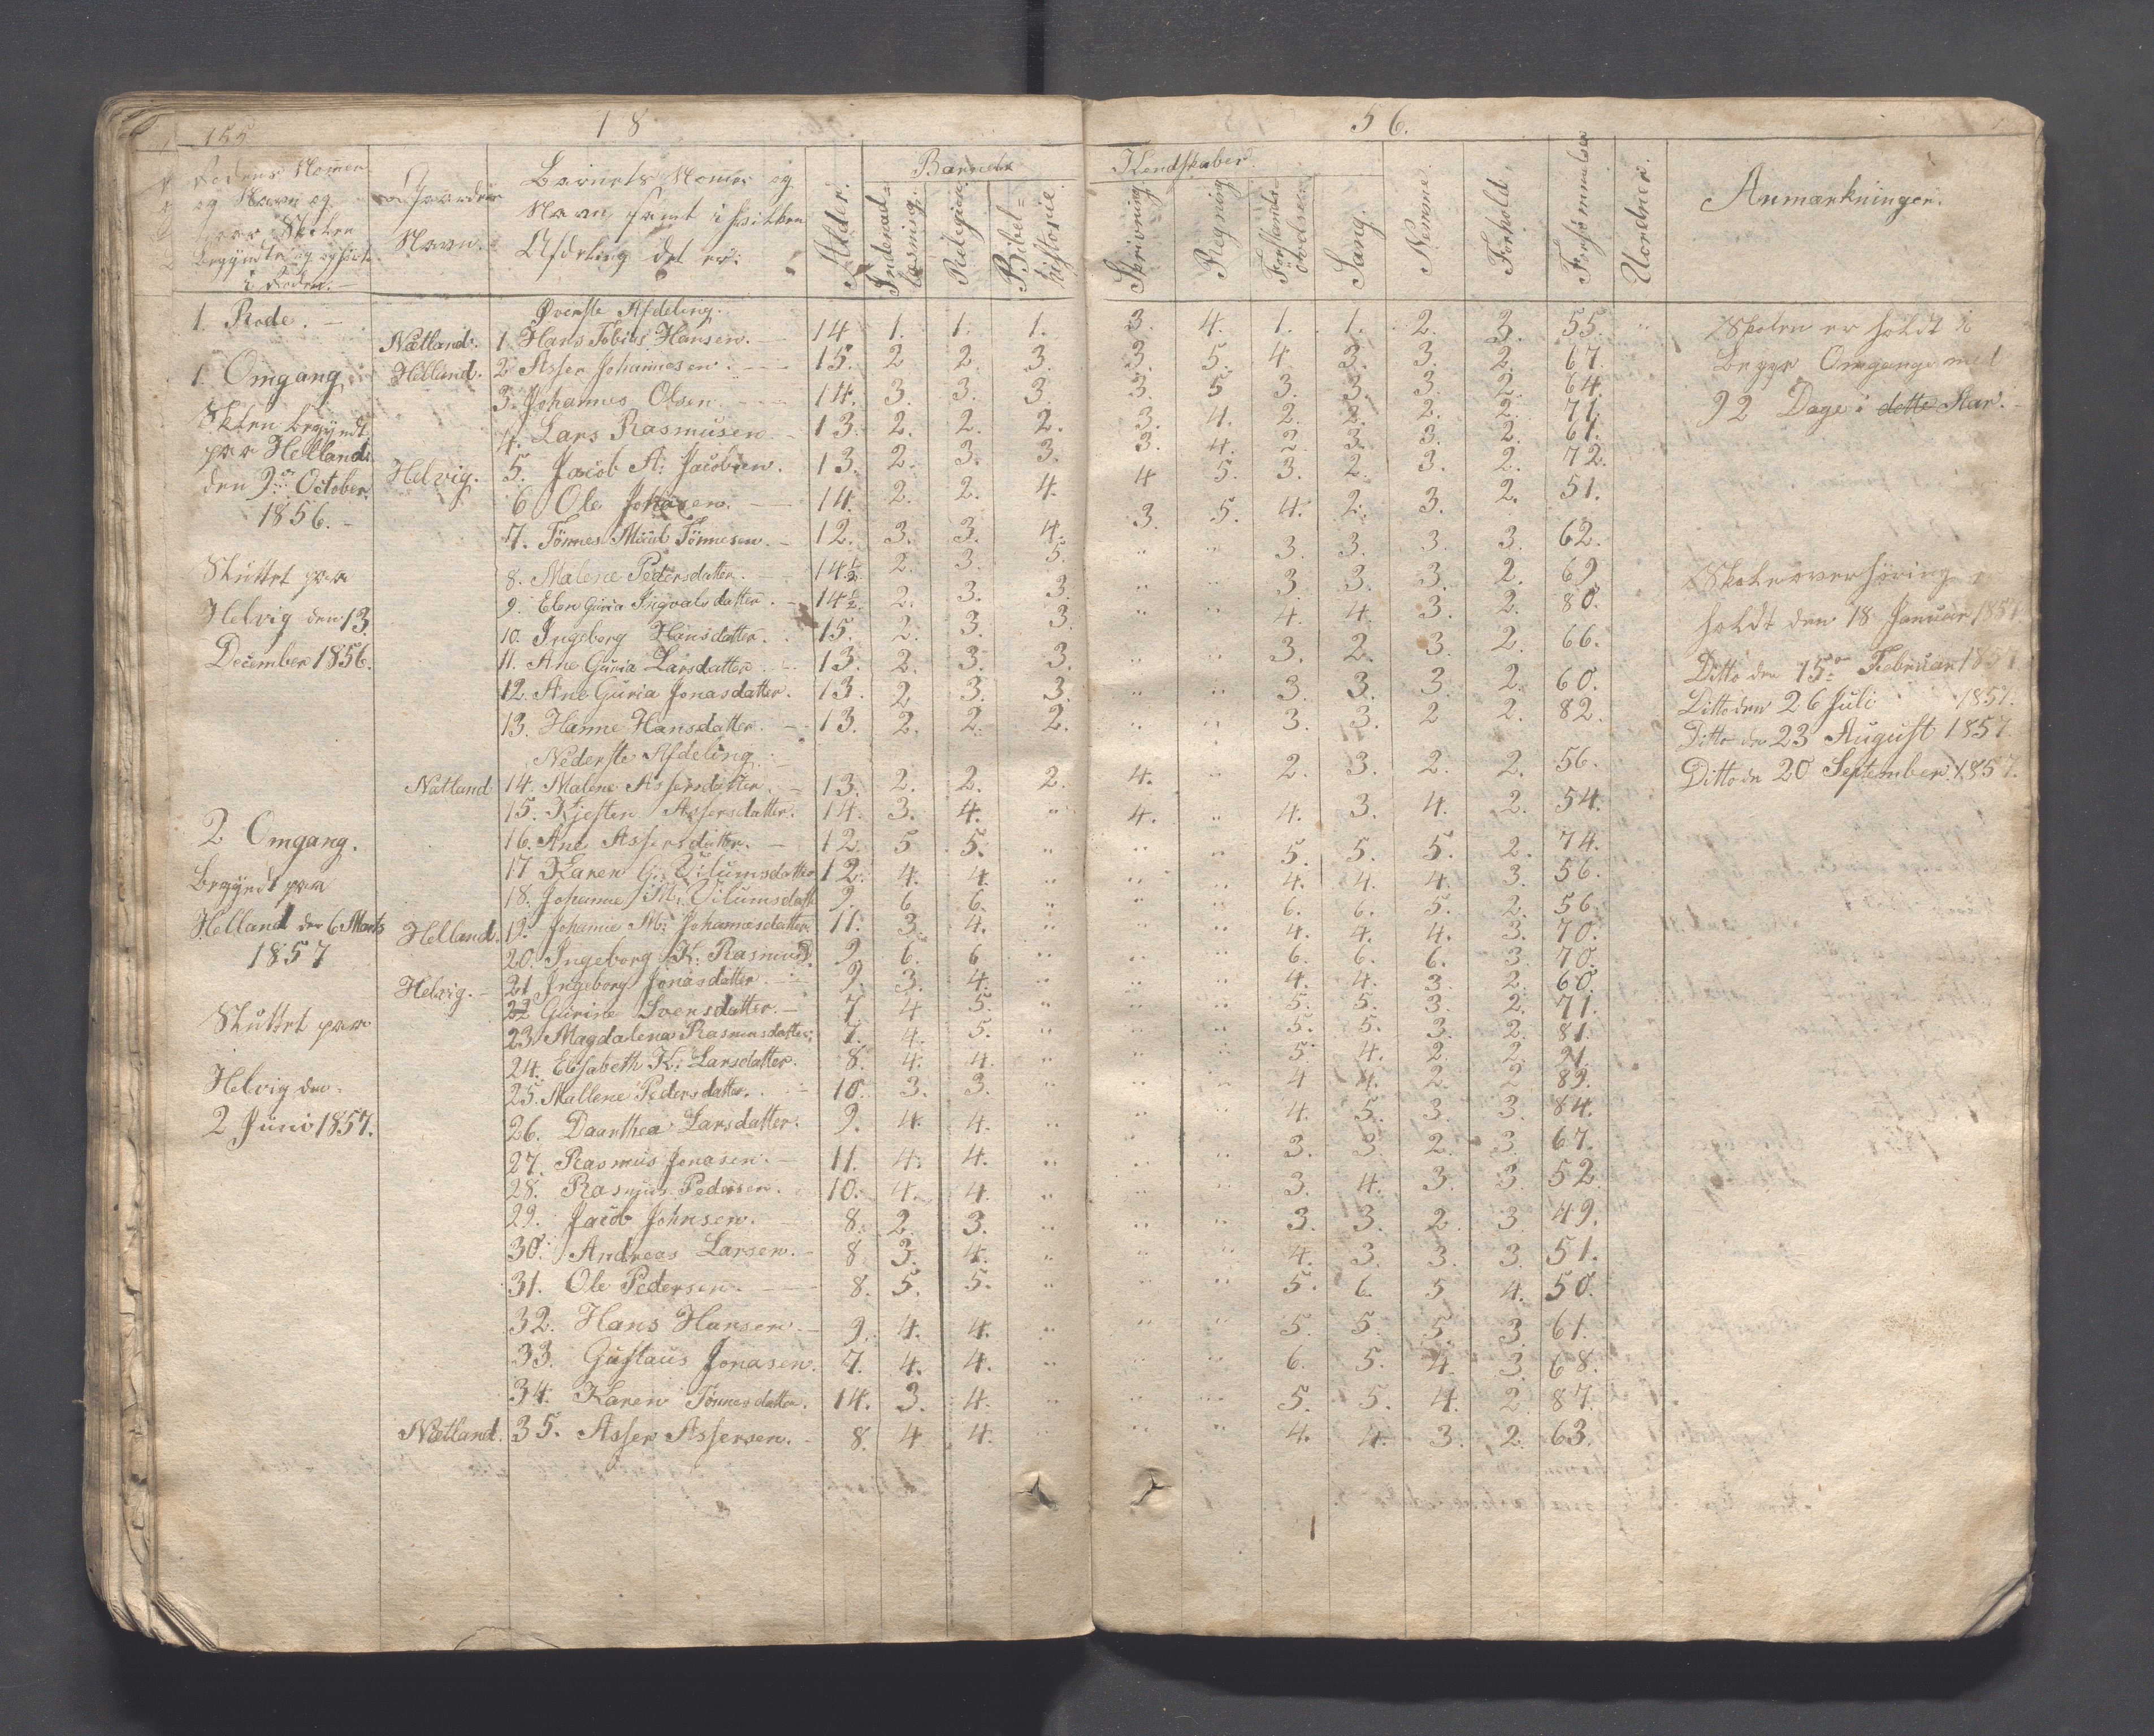 155
18 56.
Rodens Nomer
og Navn og
naar Skolen
begyndte og ophørte
i Roden.
Gaardens
Navn.
Barnets Nomer og
Navn samt i hvilken
Afdeling det er.
Alder.
Barnets Kundskaber.
Indenad-
læsning.
Religion.
Bibel=
historie
Skrivning
Regning
Forstands
øvelser
Sang.
Nemme
Forhold.
Forsømmelser
Uordner.
Anmærkninger.
1. Rode.
1 Omgang
Skolen begyndt
paa Helland
den 9de October
1856.
Sluttet paa
Helvig den 13
December 1856.
2 Omgang.
begyndt paa
Helland den 6 Marts
1857
Sluttet paa
Helvig den
2 Juni 1857.
Øverste Afdeling.
Nætland. 1. Hans Tobias Hansen. 14 1. 1. 1. 3. 4. 1. 1. 2. 3. 55. "
Helland. 2 Asser Johannesen. 15. 2 2. 3. 3. 5. 4. 3. 3. 2. 67.
3. Johannes Olsen. 14. 3. 3. 3. 3. 5 3. 3. 3. 2. 64.
4. Lars Rasmusen. 13. 2. 2. 2. 3. 4. 2. 2. 2. 2. 71.
Helvig. 5. Jacob A: Jacobsen. 13. 2. 3. 3. 3. 4. 2. 3. 3. 2. 61.
6 Ole Jonasen. 14. 2. 2. 4. 4 5. 3. 2. 3. 2. 72.
7. Tönnes Tönnesen. 12. 3. 3. 4. 3. 5. 4. 2. 3. 2. 51.
8. Malene Pedersdatter. 14½. 2. 3. 5. " " 3. 3. 3. 3. 62.
9. Elen Guria Ingvalsdatter. 14½. 2. 3. 3. " " 3. 3. 3. 2. 69.
10. Ingeborg Hansdatter. 15. 2. 3. 3. " " 4. 4. 3. 2. 80.
11. Ane Guria Larsdatter. 13. 2. 3. 3. " " 3. 2. 3. 2. 66.
12. Ane Guria Jonasdatter. 13. 2 3. 3. " " 3. 3. 3. 2. 60.
13. Hanne Hansdatter. 13. 2. 2. 2. " " 3. 3. 2 2. 82.
Nederste Afdeling
Nætland 14. Malene Assersdatter. 13. 2. 2. 2. 4. " 2. 3. 2. 2. 56.
15. Kjesten Assersdatter. 14. 3. 4. " 4. " 4. 3. 4. 2. 54.
16. Ane Assersdatter. 12 5 5. " " " 5. 5. 5. 2. 74.
17 Karen G: Vilumsdatter 12. 4. 4. " " " 4. 4. 4. 3. 56.
18. Johanne M: Vilumsdatt 9. 6 6. " " " 6. 6. 5. 2. 56.
Helland. 19. Johanne M: Johannesdatter. 11. 3. 4. " " " 4. 4. 4. 3. 70.
20. Ingeborg K: Rasmusd. 9 6. 6 " " " 6. 6. 6. 3. 70.
Helvig. 21 Ingeborg Jonasdatter. 9. 3. 4. " " " 4. 4. 3. 2. 60.
22 Gurine Svensdatter. 7. 4 5. " " " 5. 5. 3. 2. 71.
23. Magdalena Rasmusdatter. 7. 4. 5. " " " 5. 5. 3. 2. 81.
24. Elisabeth K: Larsdatter. 8. 4. 4. " " " 5. 4. 2. 2. 21.
25. Mallene Pedersdatter. 10. 3. 3. " " " 4 4. 2. 2 89.
26. Daarthea Larsdatter. 9. 4. 4. " " " 4. 5. 3. 3. 84.
27. Rasmus Jonasen. 11. 4. 4. " " " 3. 3. 2. 3. 67.
28. Rasmus Pedersen. 10. 4. 4. " " " 3. 4. 3. 3. 52.
29. Jacob Johnsen. 8. 2. 3. " " " 3. 3. 2. 3 49.
30. Andreas Larsen. 8 3. 4. " " " 4. 3. 3. 3. 51.
31. Ole Pedersen. 8. 5. 5. " " " 5. 6. 5 4. 50.
32. Hans Hansen. 9. 4. 4. " " " 5. 5. 5. 3. 61.
33. Gustaus Jonasen. 7. 4. 4. " " " 6. 5. 4. 3. 68.
34. Karen Tönnesdatter. 14. 3. 4. " " " 5. 5. 4. 2. 87.
Nætland. 35. Asser Assersen. 8. 4 4. " " " 4. 4. 3. 2. 63.
Skolen er holdt i
begge Omgange med
92 Dage i dette Aar.
Skoleoverhøring
holdt den 18 Januar 1857.
Ditto den 15de Februar 1857
Ditto den 26 Juli 1857.
Ditto den 23 August 1857
Ditto den 20 September 1857.